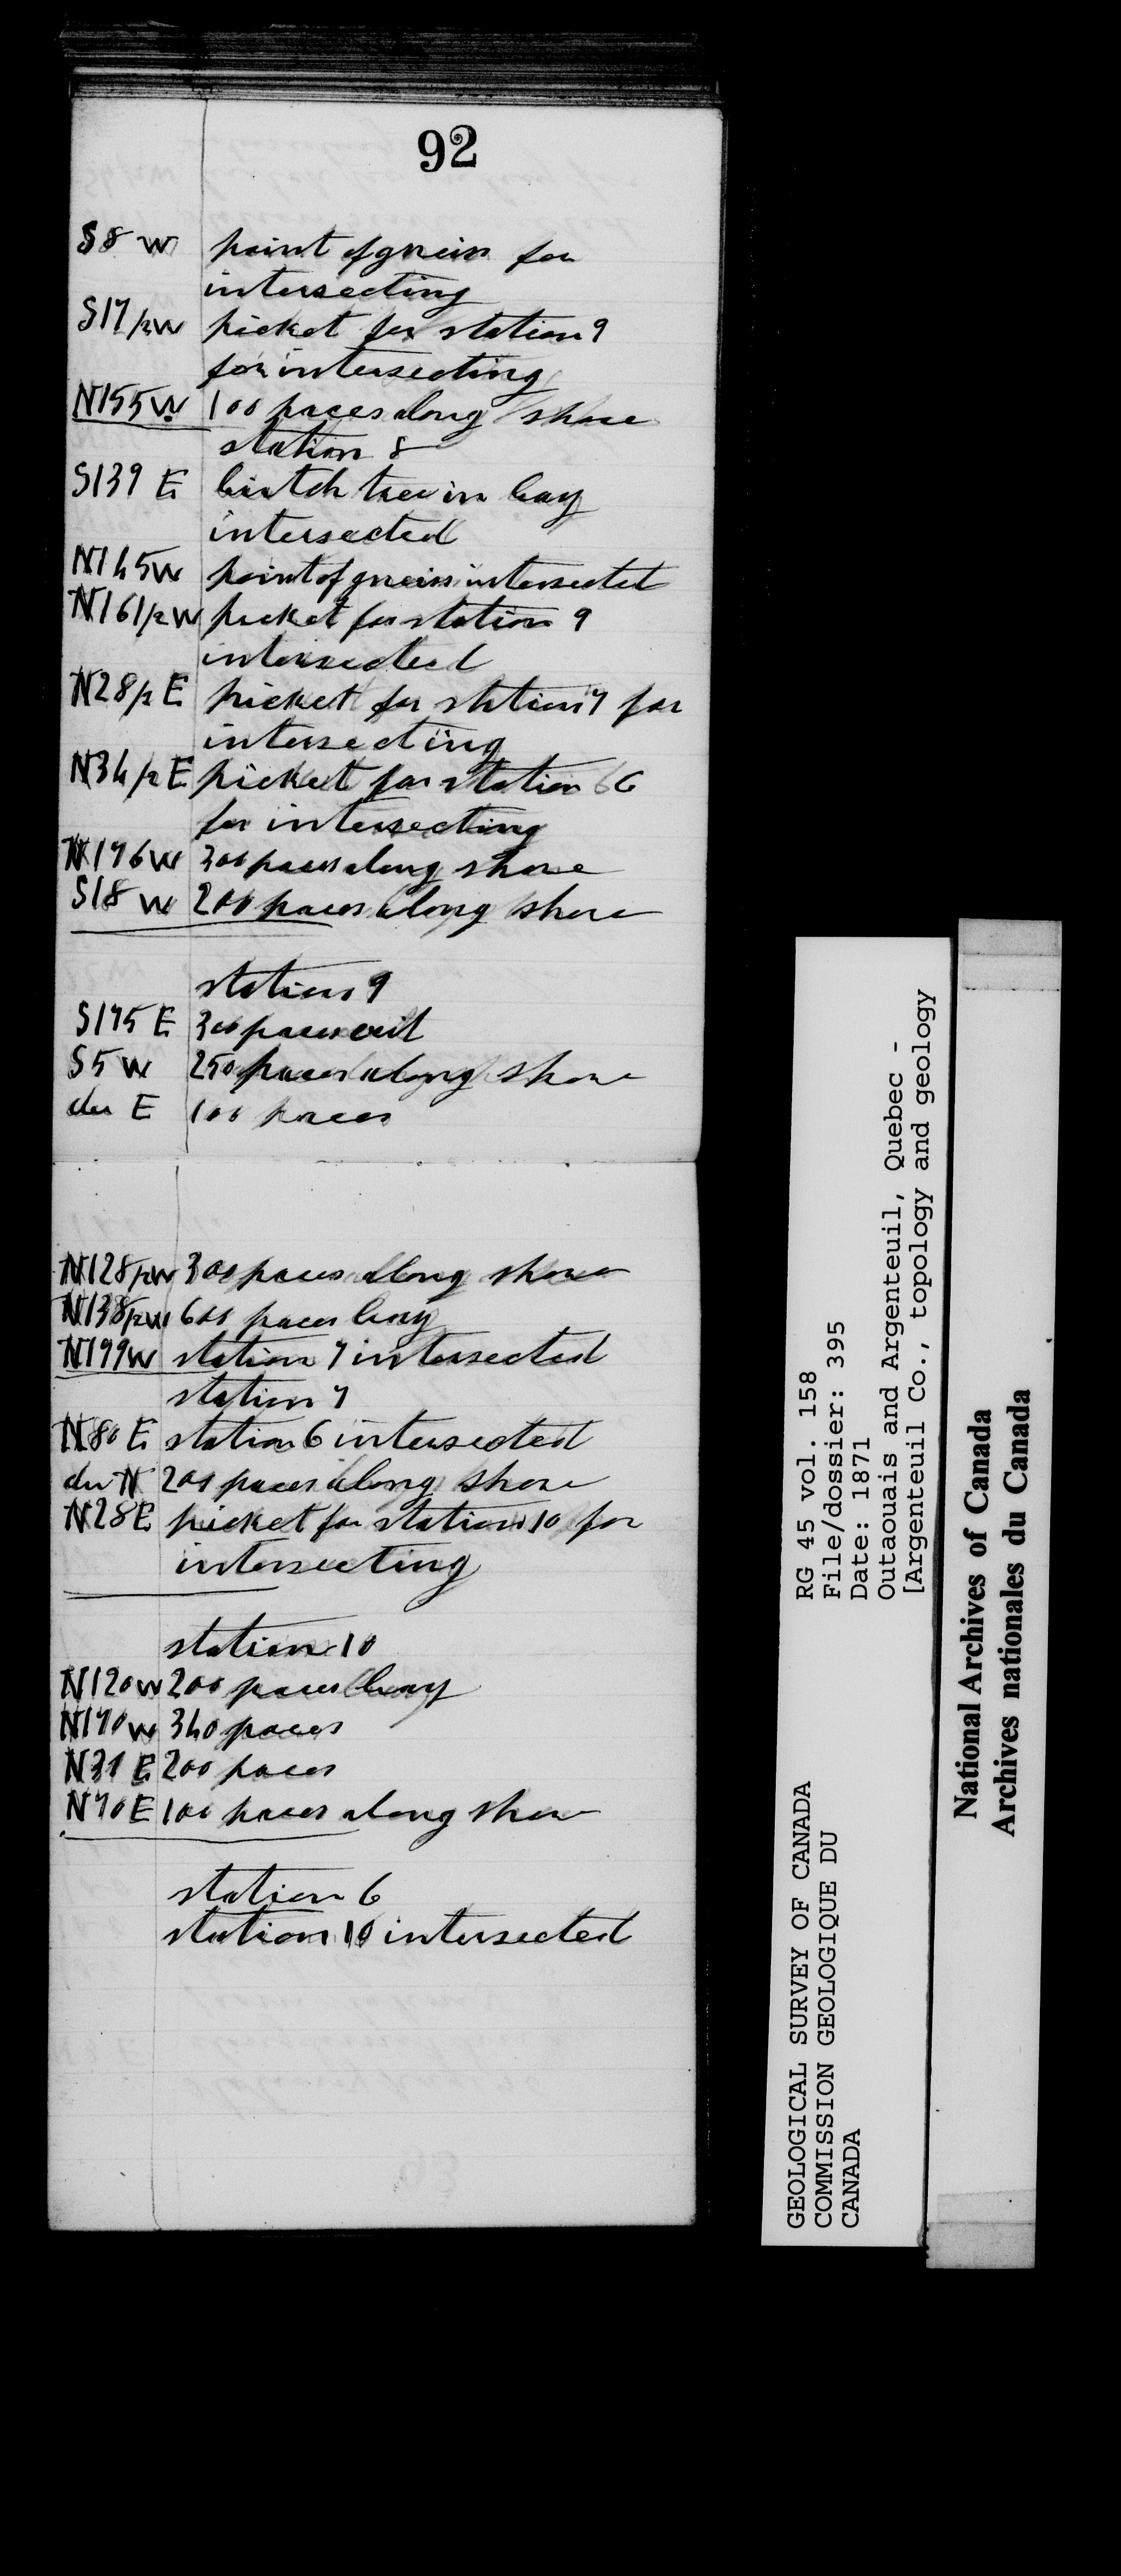 92
S8 W point of gneiss for
intersecting
S17/2W picket for station 9
for intersecting
N155W 100 paces along shore
station 8
S139 E birtch tree in bay
intersected
N145W point of gneiss intersected
N161/2W picket for station 9
intersected
N28/2 E picket for station 7 for
intersecting
N34/2 E picket for station 6
for intersecting
N176W 300 paces along shore
S18 W 200 paces along shore
station 9
S175 E 300 paces
S5 W 250 paces along shore
du E 100 paces
N128/2W 300 paces along shore
N138/2W 600 paces bay
N199W station 7 intersected
station 7
N80 E station 6 intersected
du N 200 paces along shore
N28E picket for station 10 for
intersecting
station 10
N120W 200 paces bay
N170W 340 paces
N31 E 200 paces
N70E 100 paces along shore
station 6
station 10 intersected
GEOLOGICAL SURVEY OF CANADA
COMMISSION GEOLOGIQUE DU
CANADA
RG 45 vol. 158
File/dossier: 395
Date: 1871
Outaouais and Argenteuil, Quebec -
[Argenteuil Co., topology and geology
National Archives of Canada
Archives nationales du Canada